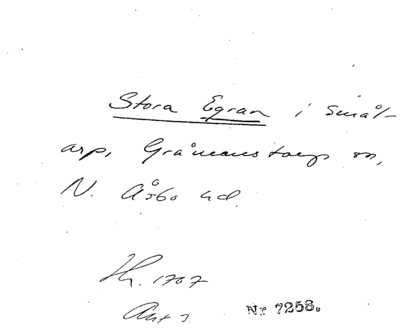 Stora Egran i Smål-
arp, Gråmanstorps sn,
N. Åsbo hd.
Hh. 1707
Akt 3.
Nr 7258.